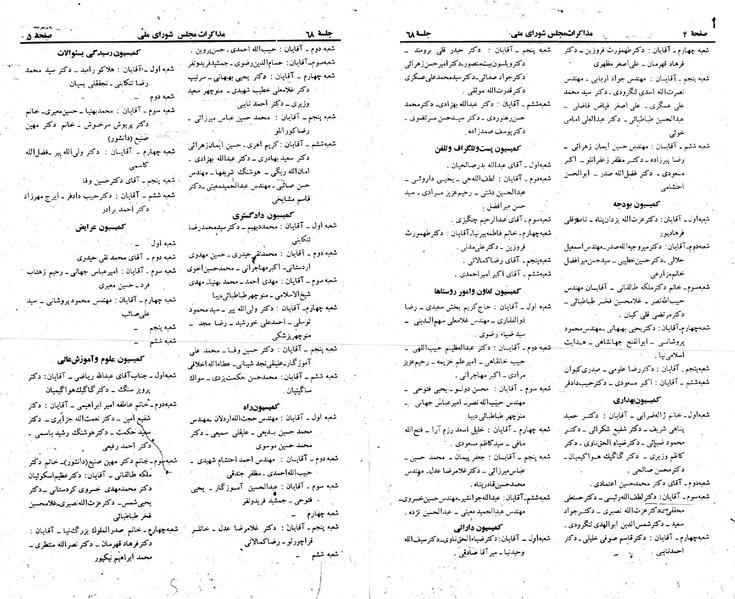 صفحه ۴
مذاکرات مجلس شورای ملی
جلسه ۶۸
شعبه چهارم ـ آقایان : دکتر طهمورث فروزین ـ دکتر
فرهاد قهرمان ـ علی‌اصغر مظهری
شعبه پنجم ـ آقایان : مهندس جواد اربابی ـ مهندس
نصرت‌الله اسدی لنگرودی ـ دکتر سید محمد
علی عسگری ـ علی اصغر فیاض فاضلی ـ
عبدالحسین طباطبائی ـ دکتر عبدالعلی امامی
خوئی
شعبه ششم ـ آقایان : مهندس حسین ایمان زهرائی ـ
رضا پیرزاده ـ دکتر مظفر زعفرانلو ـ اکبر
مسعودی ـ دکتر فضل‌الله صدر ـ ابوالحسن
احتشامی
کمیسیون بودجه
شعبه‌اول ـ آقایان : دکتر عزت‌الله یزدان‌پناه ـ ناصرقلی
فرهادپور
شعبه‌دوم ـ آقایان : دکتر میروجیه‌الله صدر ـ مهندس اسمعیل
جلالی ـ دکتر حسین خطیبی ـ سیدحسن میرافضل
خانم مزارعی
شعبه‌سوم ـ خانم دکتر ملکه طالقانی ـ آقایان مهندس
حبیب‌الله نصر ـ غلامحسین فخر طباطبائی ـ
دکتر مرتضی قلی کیان .
شعبه‌چهارم ـ آقایان : دکتر یحیی بهبهانی ـ مهندس محمود
پروشانی ـ ابوالفتح جهانشاهی ـ هدایت
اسلامی‌نیا .
شعبه‌پنجم ـ آقایان : دکتر رضا علومی ـ حیدری کیوان
شعبه ششم ـ آقایان : اکبر مسعودی ـ دکتر حبیب دادفر
کمیسیون بهداری
شعبه‌اول ـ خانم ژاله ضرابی ـ آقایان : دکتر حمید
پناهی شریف ـ دکتر شفیع شکرائی ـ دکتر
محمود ضیائی ـ دکتر ضیاء‌الحق‌ناوی ـ دکتر
کاظم وزیری ـ دکتر گاگیک هواگیمیان ـ
دکتر محسن صالحی .
شعبه دوم ـ آقای دکتر محمدحسین اعتمادی .
شعبه سوم ـ آقایان : دکتر لطف‌الله رئیسی ـ دکتر حسنعلی
محققی ـ دکتر عزت‌الله نصیری ـ دکتر جواد
سعید ـ دکتر شمس‌الدین ابوالهدی لنگرودی .
شعبه چهارم ـ آقایان : دکتر قاسم صوفی خلیلی ـ دکتر
احمدنابی .
شعبه پنجم ـ آقایان : دکتر حیدر قلی برومند ـ
دکتر جواد صفائی ـ دکتر سید محمدعلی عسکری
دکتر قدرت‌الله موثقی .
شعبه‌ششم ـ آقایان : دکتر عبدالله بهزادی ـ دکتر محمد
حسن رهنوردی ـ دکتر سیدحسن مرتضوی ـ
دکتر یوسف صمدزاده .
کمیسیون پست‌وتلگراف وتلفن
شعبه‌اول ـ آقای عبدالله بدرصالحیان .
شعبه‌دوم ـ آقایان : لطف‌الله حی ـ یحیی داروشی ـ
عبدالحسین دشتی ـ رحیم عزیز مرادی ـ سید
حسن میرافضل .
شعبه‌سوم ـ آقای عبدالرحیم چنگیزی .
شعبه‌چهارم ـ خانم فاطمه پیرنیا ـ آقایان : دکتر طهمورث
فروزین ـ دکتر علی‌مدنی .
شعبه پنجم ـ آقای رضا کمالانی .
شعبه ششم ـ آقای اکبر امیراحمدی .
کمیسیون تعاون وامور روستاها
شعبه اول ـ آقایان : حاج کریم بخش سعیدی ـ رضا
ذوالفقاری ـ مهندس غلامعلی سهم‌الدینی ـ
سید ضیاء رضوی .
شعبه دوم ـ آقایان : دکتر عبدالعظیم حبیب‌اللهی ـ
حبیب خانقاهی ـ امیرعلم خزیمه ـ رحیم عزیز
مرادی ـ اکبر مهاجرانی .
شعبه سوم ـ آقایان : محسن دولو ـ یحیی فتوحی ـ
مهندس حبیب‌الله نصر ـ امیرعباس جهانی ـ
منوچهر طباطبائی دیبا
شعبه چهارم ـ آقایان : خلیل اسعد رزم آرا ـ فتح‌الله
مافی ـ سیدکاظم مسعودی .
شعبه پنجم ـ آقایان : جعفر پیمان ـ محمد حسین ـ
عباس میرزائی ـ دکتر غلامرضا عدل ـ مهندس
محمدحسین قادرپناه .
شعبه‌ششم ـ آقایان : عبدالله جوانشیر ـ مهندس حسین خسروی
مهندس عبدالحمید معینی ـ عبدالحسین نژده .
کمیسیون دارائی
شعبه‌اول ـ آقایان : دکتر ضیاء‌الحق‌ناوی ـ دکتر سیف‌الله
وحیدنیا ـ میرآقا صادقی .
جلسه ۶۸
مذاکرات مجلس شورای ملی
صفحه ۵
شعبه دوم ـ آقایان : حبیب‌الله احمدی ـ حسن پروین .
شعبه‌سوم ـ حسام‌الدین رضوی ـ جمشید فریدونفر
شعبه چهارم ـ آقایان : دکتر یحیی بهبهانی ـ سرتیپ
دکتر غلامعلی خطیب شهیدی ـ منوچهر سعید
وزیری ـ دکتر احمد نابی
شعبه پنجم ـ آقایان : محمد حسین عباس میرزائی ـ
رضا کورانلو
شعبه‌ششم ـ آقایان : کریم اهری ـ حسین ایمان‌زهرائی
دکتر سعید بهادری ـ دکتر عبدالله بهزادی ـ
امان‌الله ریگی ـ هوشنگ شریفها ـ مهندس
حسن صائبی ـ مهندس عبدالحمیدمعینی ـ دکتر
قاسم مشایخی
کمیسیون دادگستری
شعبه اول ـ آقایان : محمددیهیم ـ دکتر سیدمحمدرضا
تنکابنی
شعبه دوم ـ آقایان : محمدتقی‌حیدری ـ حسین مهدوی
اردستانی ـ اکبر مهاجرانی ـ محمدحسین اخوی
شعبه سوم ـ آقایان : مهدی احمد ـ محمد بهنیا ـ مهدی
شیخ‌الاسلامی ـ منوچهر طباطبائی دیبا
شعبه چهارم ـ آقایان : دکتر ولی‌الله پیر ـ سید محمود
توسلی ـ احمدعلی خورشید ـ رضا مجد ـ
منوچهر پزشکی
شعبه پنجم ـ آقایان : دکتر حسین وفا ـ محمد علی
آموزگار ـ علینقی نجد شیبانی ـ عطاءالله اخلاقی
شعبه ششم ـ آقایان : محمدحسن حکمت‌یزدی ـ سواک
ساگینیان
کمیسیون راه
شعبه اول ـ آقایان : مهندس حجت‌الله اردلان ـ مهندس
محمد حسین بدیعی ـ عایقلی سمیعی ـ دکتر
محمد حسین موسوی
شعبه دوم ـ آقایان : مهندس احمد احتشام شهیدی ـ
حبیب‌الله احمدی ـ مظفر جندقی
شعبه سوم ـ آقایان : عبدالحسین آموزگار ـ یحیی
فتوحی ـ جمشید فریدونفر
شعبه چهارم ـ
شعبه پنجم ـ آقایان : دکتر غلامرضا عدل ـ خانلر
قراچورلو ـ رضا کمالانی
شعبه ششم ـ
کمیسیون رسیدگی بسئوالات
شعبه اول ـ آقایان : هلاکو رامبد ـ دکتر سید محمد
رضا تنکابنی ـ نجفقلی پسیان
شعبه دوم ـ
شعبه سوم ـ آقایان : محمدبهنیا ـ حسین‌معیری ـ خانم
دکتر پریوش سرخوش ـ خانم دکتر مهین
صنیع (دانشور)
شعبه چهارم ـ آقایان : دکتر ولی‌الله پیر ـ فضل‌الله
کاسمی
شعبه پنجم ـ آقای دکتر حسین وفا
شعبه ششم ـ آقایان : دکتر حبیب دادفر ـ ایرج مهرزاد
دکتر احمد برادر
کمیسیون عرایض
شعبه اول ـ
شعبه دوم ـ آقای محمد تقی حیدری
شعبه سوم ـ آقایان : امیرعباس جهانی ـ رحیم زهتاب
فرد ـ حسین معیری
شعبه چهارم ـ آقایان : مهندس محمود پروشانی ـ سید
علی صائب
شعبه پنجم ـ
شعبه ششم ـ
کمیسیون علوم و آموزش‌عالی
شعبه‌اول ـ جناب آقای عبدالله ریاضی ـ آقایان : دکتر
پرویز سنگ ـ دکتر گاگیک هواگیمیان
شعبه‌دوم ـ خانم عاطفه امیر ابراهیمی ـ آقایان : دکتر
شفیع امین ـ دکتر نعمت‌الله جزایری ـ دکتر
سعید حکمت ـ دکتر هوشنگ رشید یاسمی ـ
دکتر احمد رفیعی
شعبه سوم ـ خانم دکتر مهین صنیع (دانشور) ـ خانم دکتر
ملکه طالقانی ـ آقایان : دکتر عظیم اسکوئیان
دکتر محمدمهدی خسروی کردستانی ـ دکتر
یحیی‌شمس ـ دکتر عزت‌الله نصیری ـ غلامحسین
فخر طباطبائی
شعبه‌چهارم ـ خانم صدرالملوک بزرگ‌نیا ـ آقایان :
دکتر فرهاد قهرمان ـ دکتر نصرالله منتظری ـ
محمد ابراهیم نیکپور